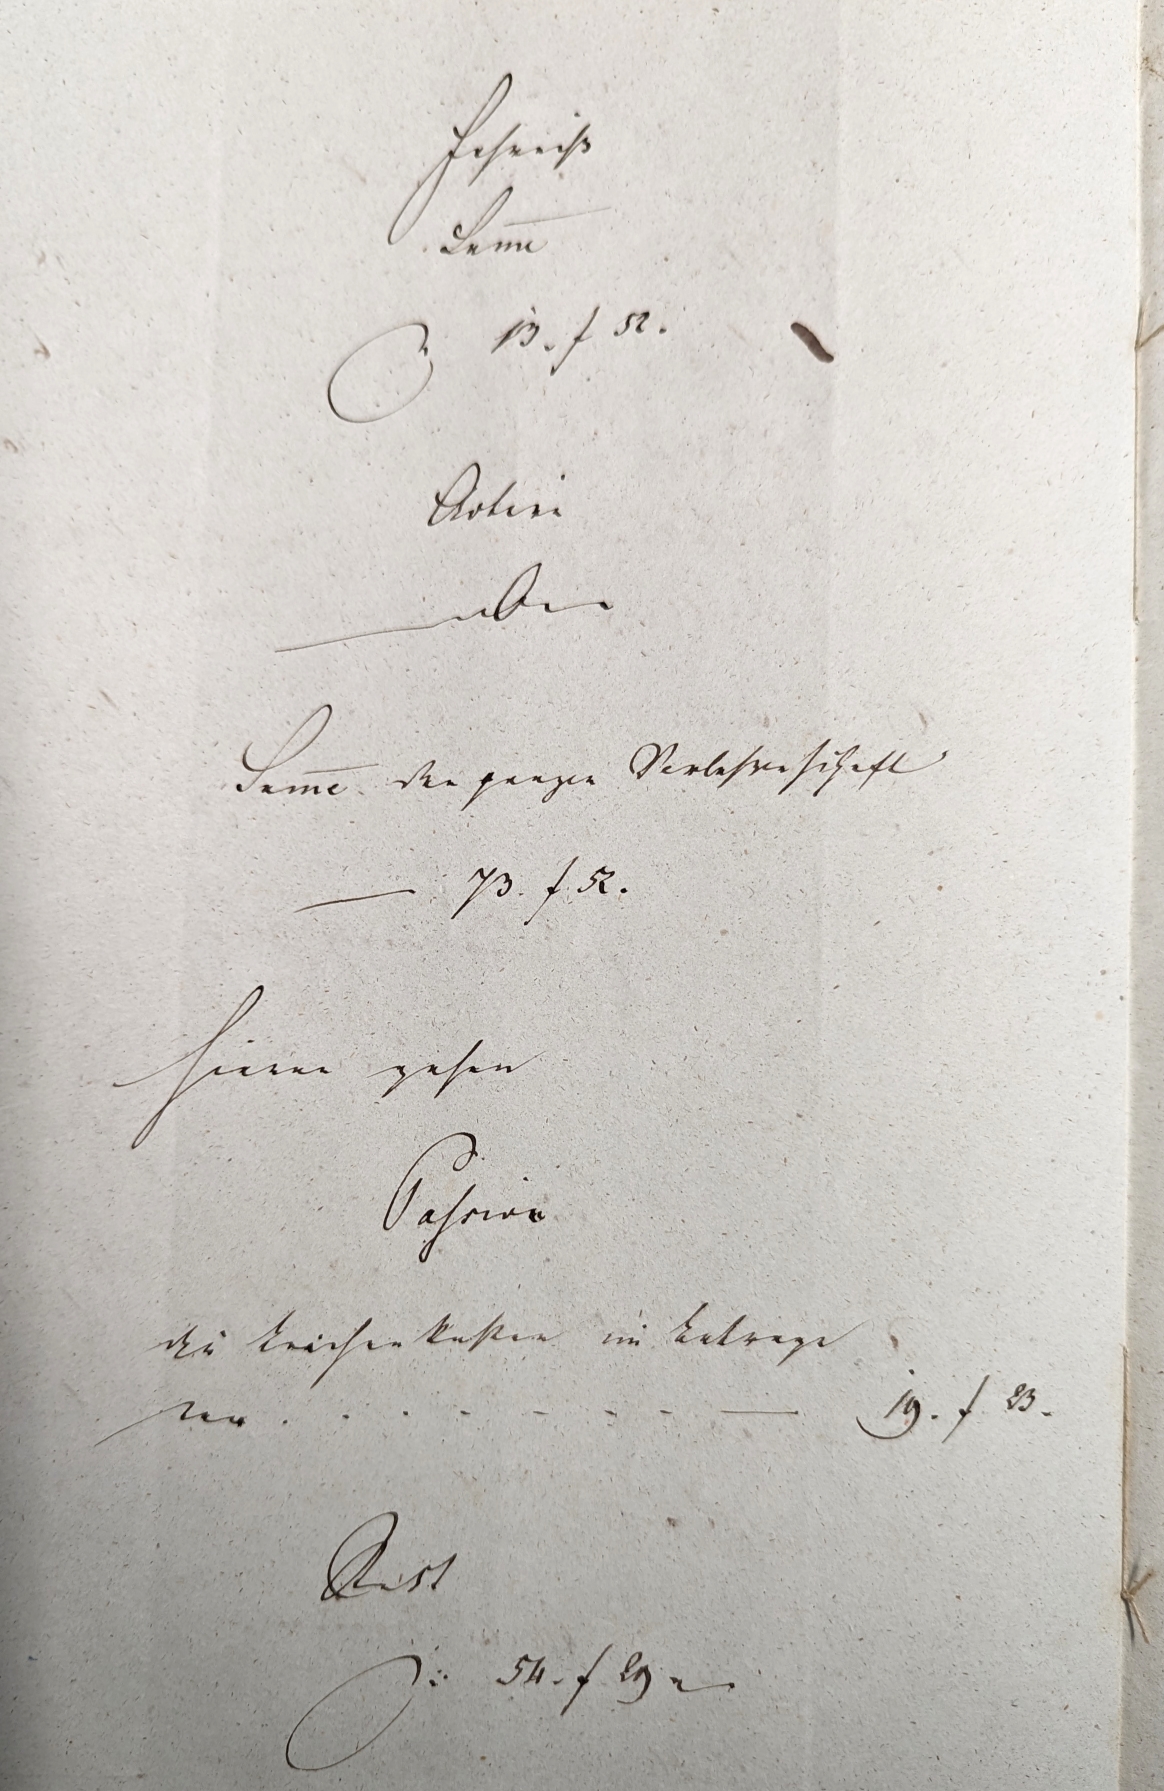 Fahrniß
Sum̅e
13. f 52.
Activa
Sum̅e der ganzen Verlassenschaft
— 73. f 52.
Hievon gehen
Passiva
die Leichenkosten im Betrage
von . . . . - - - - — 19. f 23.
Rest
: 54. f 29